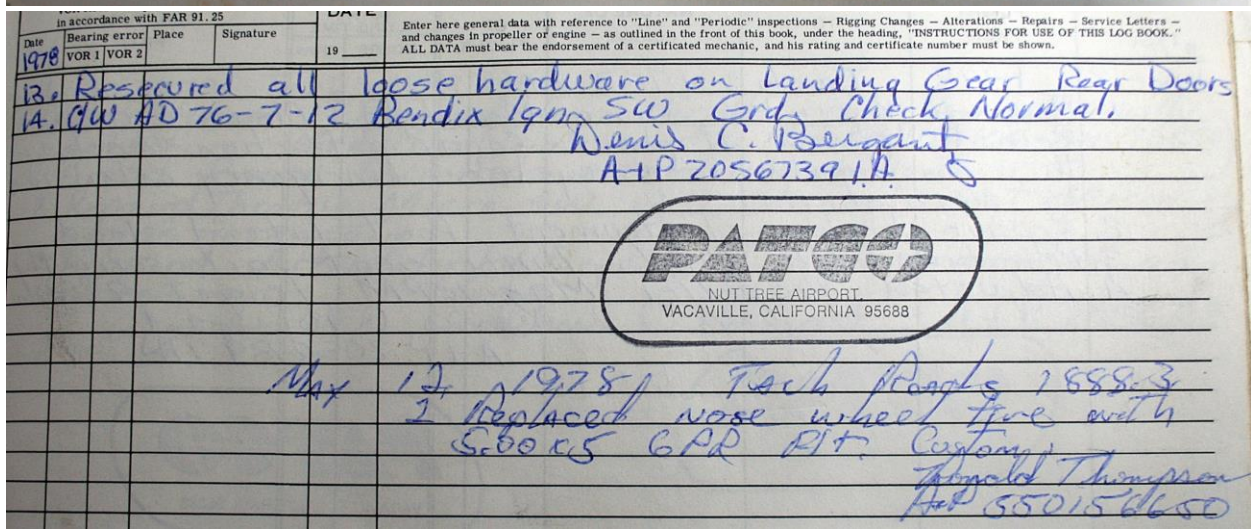 in accordance with FAR 91.25
DATE
Enter here general data with reference to "Line" and "Periodic" inspections — Rigging Changes — Alterations — Repairs — Service Letters —
and changes in propeller or engine — as outlined in the front of this book, under the heading, "INSTRUCTIONS FOR USE OF THIS LOG BOOK."
ALL DATA must bear the endorsement of a certificated mechanic, and his rating and certificate number must be shown.
Date
Bearing error Place Signature
1978 VOR 1 VOR 2
19
13. Resecured all loose hardware on Landing Gear Rear Doors
14. C/W AD 76-7-12 Bendix Ign. SW Grd. Check Normal.
Denis C. Bergant
A+P 2056739 I.A.
PATCO
NUT TREE AIRPORT.
VACAVILLE, CALIFORNIA 95688
May 12, 1978 Tach Reads 1888.3
1 Replaced nose wheel tire with
5.00x5 6PR Custom
Ronald Thompson
A+P 550156650